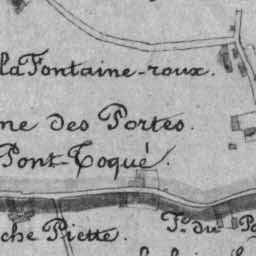 la Fontaine-roux.
ne des Portes.
Pont-Toqué.
F.e du Po
che Piette.